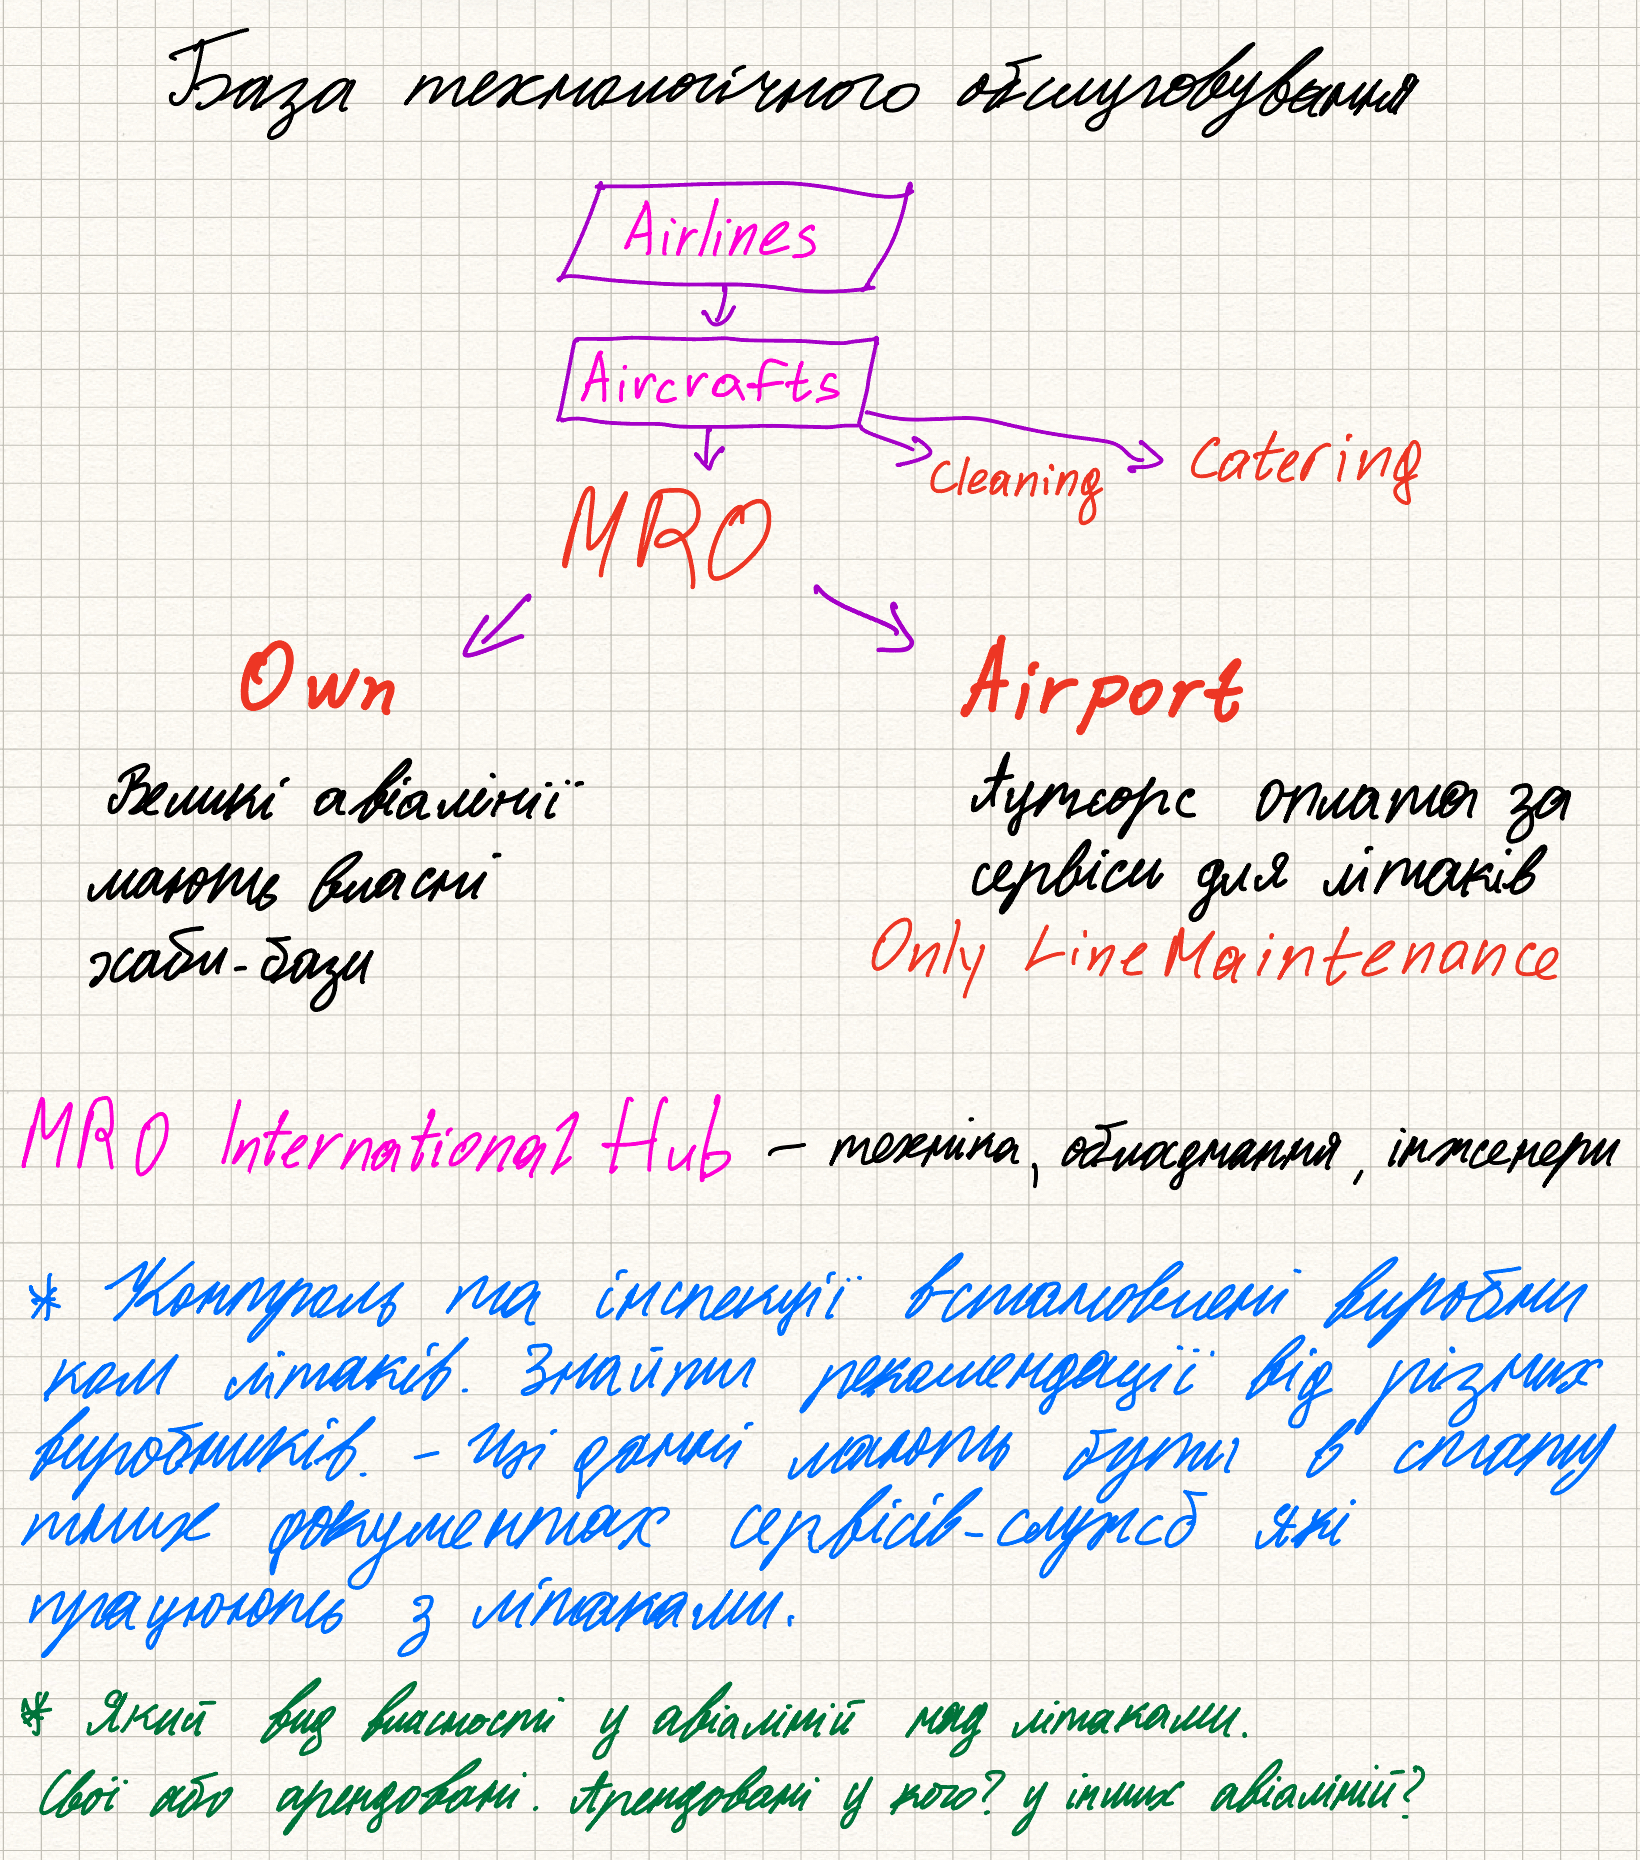 База технологічного обслуговування
Airlines
Aircrafts
Cleaning Catering
MRO
Own Airport
Великі авіалінії
мають власні
хаби-бази
Аутсорс оплата за
сервіси для літаків
Only Line Maintenance
MRO International Hub – техніка, обладнання, інженери
* Контроль та інспекції встановлені виробни
ком літаків. Знайти рекомендації від різних
виробників. – Ці данні мають бути в стату
тних документах сервісів-служб які
працюють з літаками.
* Який вид власності у авіаліній над літаками.
Свої або арендовані. Арендовані у кого? у інших авіаліній?